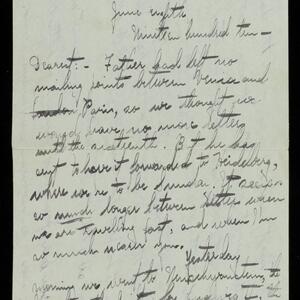 June eighth
Nineteen hundred ten —
Dearest: — Father had left no
mailing points between Venice and
Paris, so we thought
we'd have no more letters
until the sixteenth. But he has
sent to have it forwarded to Heidelberg,
where we're to be Sunday. It seems
so much longer between letters when
we are traveling fast, and when I'm
so much nearer you.
Yesterday
morning we went to the